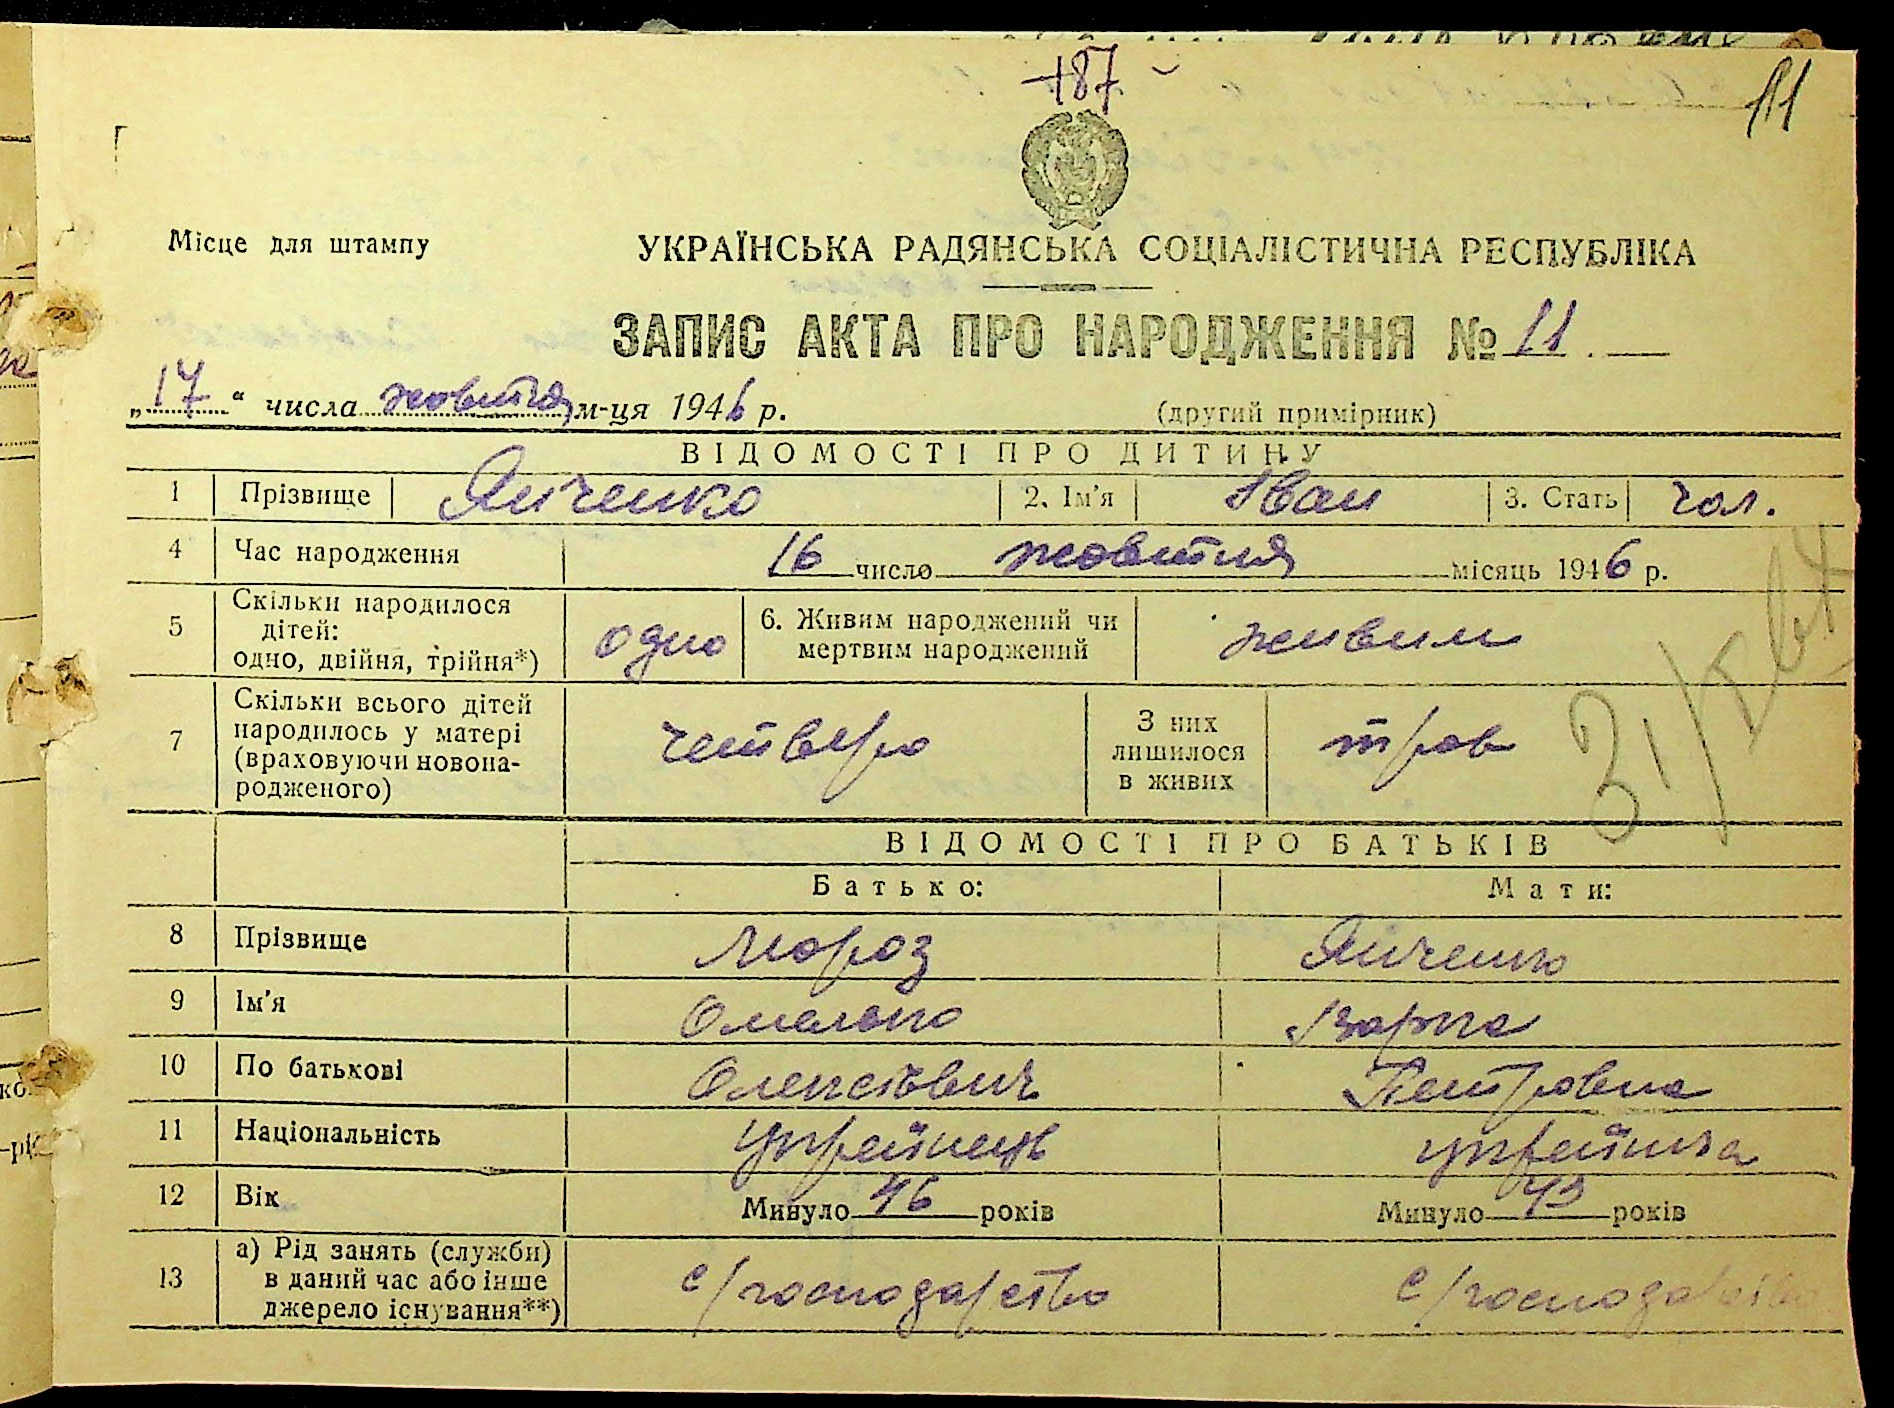 187
11
Місце для штампу
УКРАЇНСЬКА РАДЯНСЬКА СОЦІАЛІСТИЧНА РЕСПУБЛІКА
ЗАПИС АКТА ПРО НАРОДЖЕННЯ № 11.
„17“ числа жовтня м-ця 1946 р.
(другий примірник)
ВІДОМОСТІ ПРО ДИТИНУ
1 Прізвище Янченко 2. Ім'я Іван 3. Стать чол.
4 Час народження 16 число жовтня місяць 1946 р.
5 Скільки народилося
дітей:
одно, двійня, трійня*) одно
6. Живим народжений чи
мертвим народжений живим
7 Скільки всього дітей
народилось у матері
(враховуючи новона-
родженого) четверо
З них
лишилося
в живих троє
ВІДОМОСТІ ПРО БАТЬКІВ
Батько: Мати:
8 Прізвище Мороз Янченко
9 Ім'я Омелько Варка
10 По батькові Олексієвич Петровна
11 Національність українець українка
12 Вік Минуло 46 років Минуло 43 років
13 а) Рід занять (служби)
в даний час або інше
джерело існування**) с/господарство с/господарство